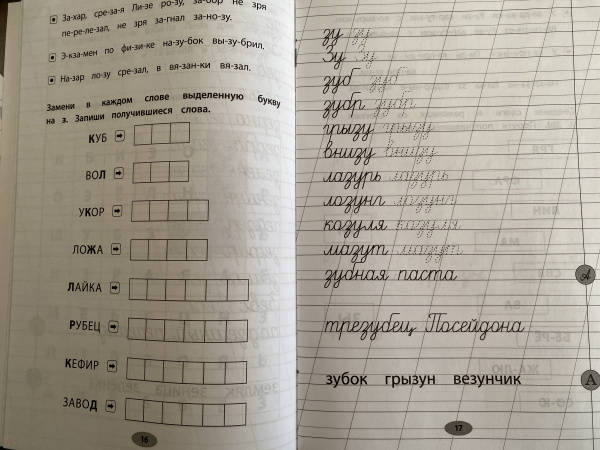 За-хар, сре-за-я Ли-зе ро-зу, за-бор не зря
пе-ре-ле-зал, не зря за-гнал за-но-зу.
Э-кза-мен по фи-зи-ке на-зу-бок вы-зу-брил.
На-зар ло-зу сре-зал, в вя-зан-ки вя-зал.
Замени в каждом слове выделенную букву
на з. Запиши получившиеся слова.
КУБ
ВОЛ
УКОР
ЛОЖА
ЛАЙКА
РУБЕЦ
КЕФИР
ЗАВОД
16
зу зу
Зу Зу
зуб зуб
зубр зубр
грызу грызу
внизу внизу
лазурь лазурь
лозунг лозунг
козуля козуля
мазут мазут
зубная паста
трезубец Посейдона
зубок грызун везунчик
17
А
А